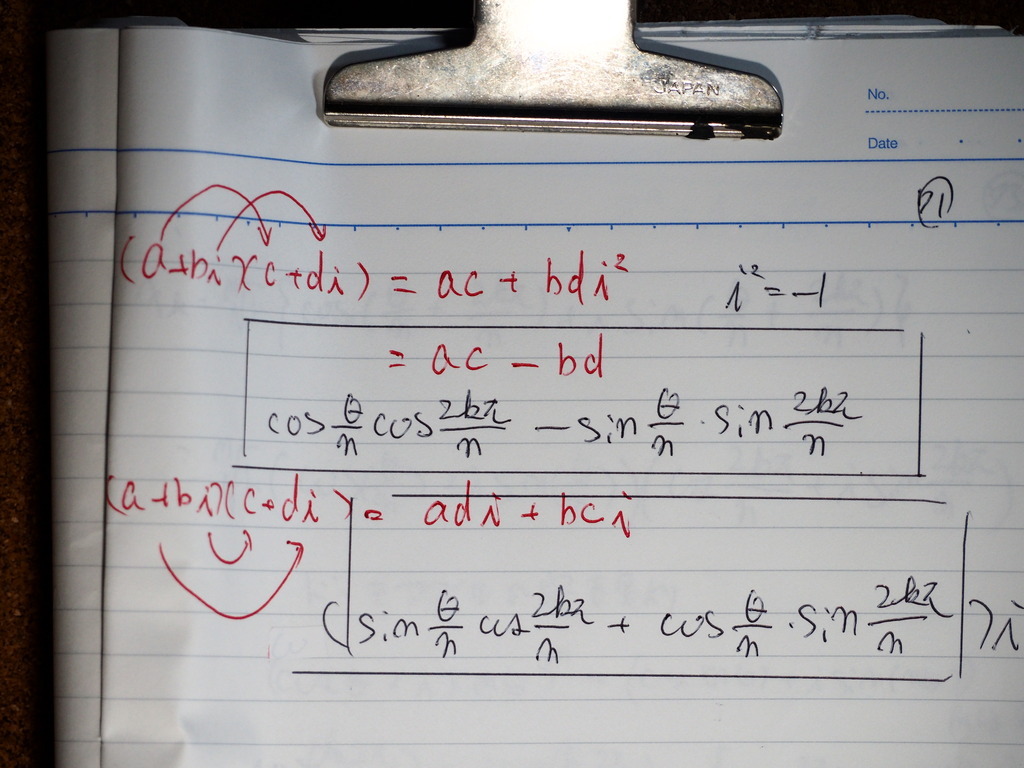 JAPAN
No.
Date
21
(a+bi)(c+di) = ac + bdi² i² = -1
= ac - bd
cos θ/n cos 2kπ/n - sin θ/n · sin 2kπ/n
(a+bi)(c+di) = adi + bci
(sin θ/n cos 2kπ/n + cos θ/n · sin 2kπ/n)i